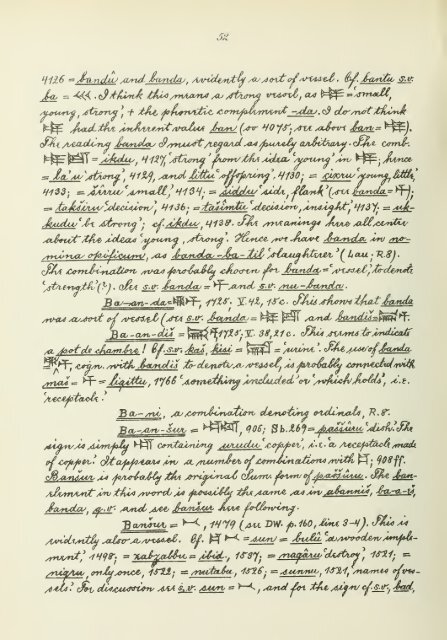 52
4126 = bandû and banda, evidently a sort of vessel. Cf. bantu s.v.
ba = . I think this means a strong vessel, as = 'small,
young, strong' + the phonetic compliment -da. I do not think
had the inherent value ban (or 4075; see above ban = ).
The reading banda I must regard as purely arbitrary. The comb.
= ikdu, 4127, 'strong' from the idea 'young' in , hence
= la'u 'strong', 4129, and littu 'offspring', 4130; = çixru 'young, little',
4133; = širru 'small', 4134; = šiddu 'side, flank' (see banda = );
= takširu 'decision', 4136; = tašimtu 'decision, insight', 4137; = uk-
kudu 'be strong'; cf. ikdu, 4138. The meanings here all centre
about the ideas 'young, strong'. Hence we have banda in no-
mina opificum, as banda-ba-til 'slaughterer' (Lau; R.8).
The combination was probably chosen for banda = 'vessel', to denote
'strength' (?). See s.v. banda = and s.v. nu-banda.
Ba-an-da = , 1725. V. 42, 15c. This shows that banda
was a sort of vessel (see s.v. banda = and bandiš =
Ba-an-diš = 1725; V. 38, 21c. This seems to indicate
a pot de chambre! Cf. s.v. kaš, kisi = = 'urine'. The use of banda
, cogn. with bandiš to denote a vessel, is probably connected with
maš = = ligittu, 1766 'something included' or 'which holds', i.e.
'receptacle.'
Ba-ni, a combination denoting ordinals, R. 8.
Ba-an-šur = , 906; Sb. 269 = paššuru 'dish'. The
sign is simply containing urudu 'copper', i.e. 'a receptacle made
of copper'. It appears in a number of combinations with ; 908 ff.
Banšur is probably the original Sum. form of paššûru. The ban-
element in this word is possibly the same as in abanniš, ba-a-š,
banda, q.v. and see banšur here following.
Banšur = , 1479 (see DW. p. 160, line 3-4). This is
evidently also a vessel. Cf. = sun = bulû 'a wooden imple-
ment,' 1498; = xabzabbu = ibid, 1587; = nagâru 'destroy', 1521; =
nigru, only once, 1522; = nutabu, 1526; = sunnu, 1521, names of ves-
sels. For discussion see s.v. sun = , and for the sign cf. s.v. bad,